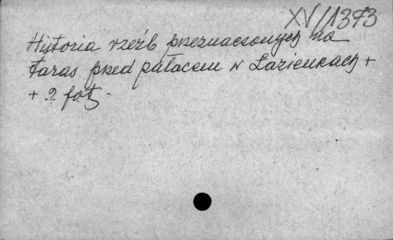 XV/1373
Historia rzeźb przeznaczonych na
taras przed pałacem w Łazienkach +
+ 2 fot.